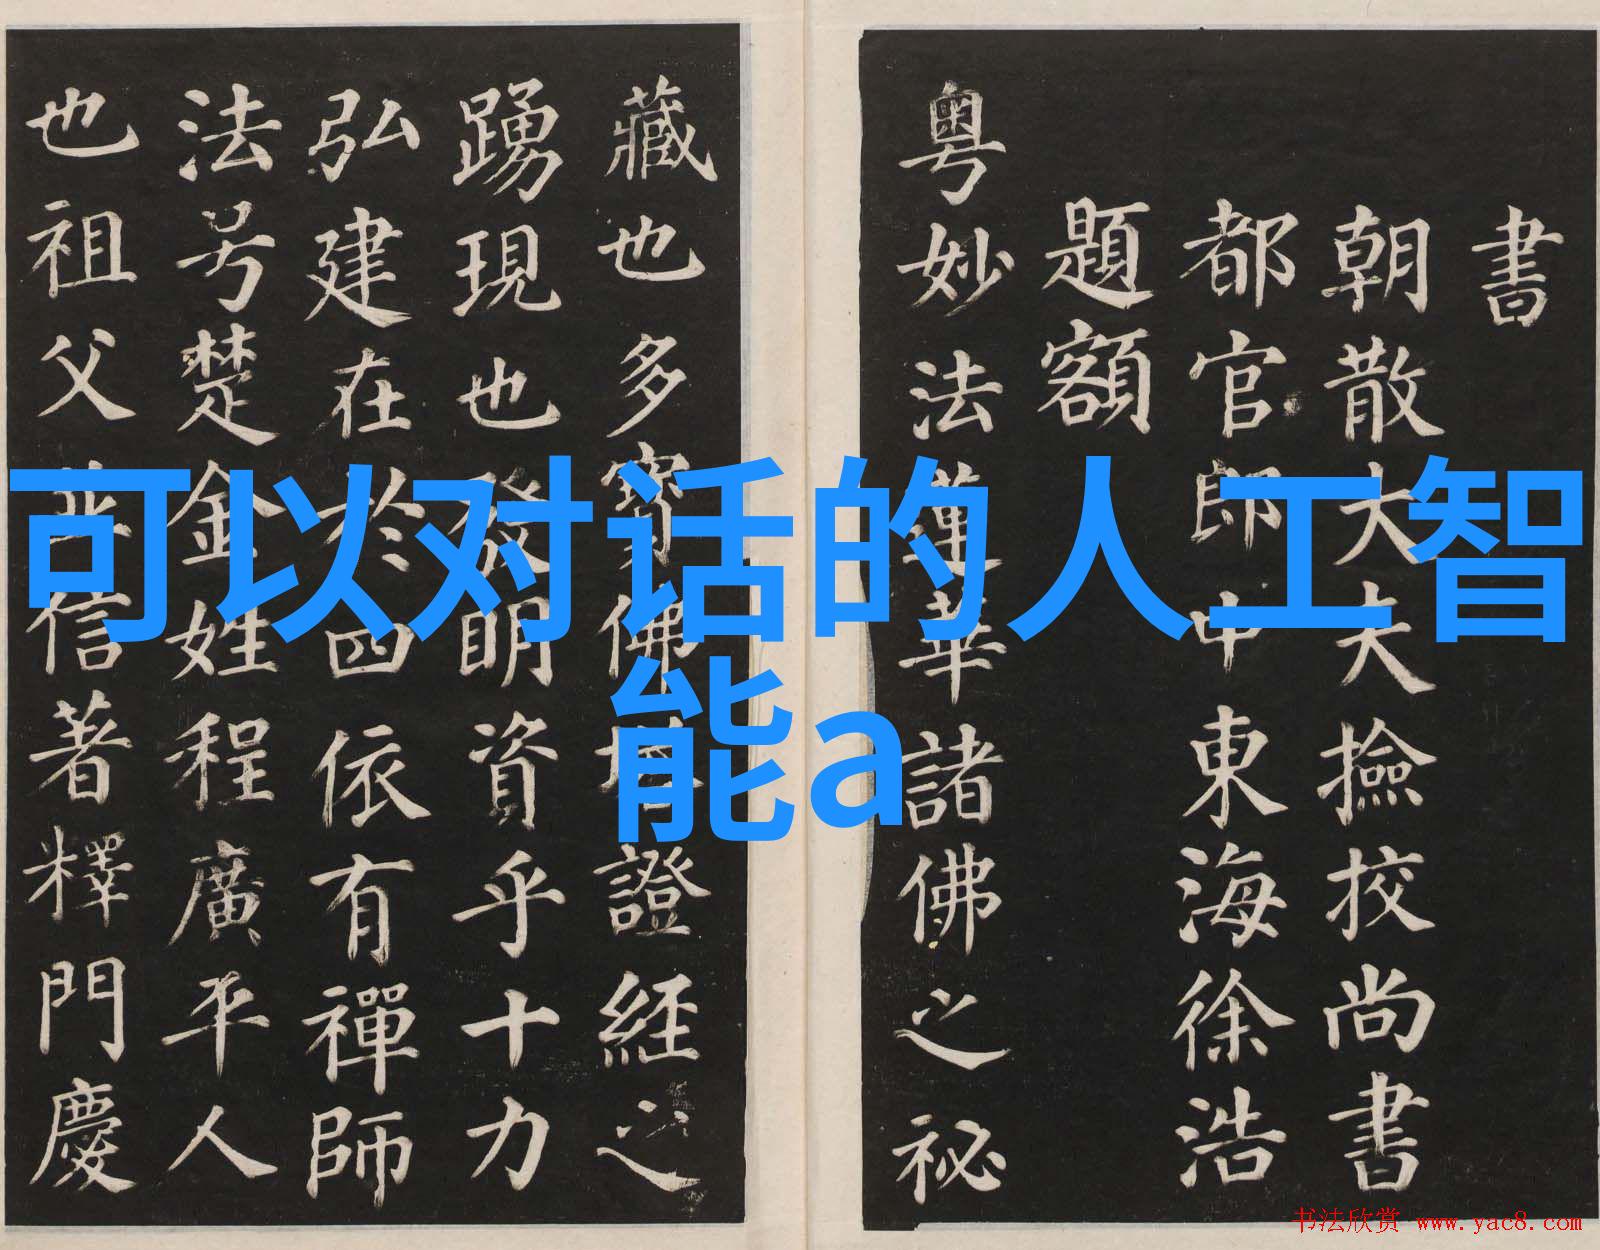 書
朝散大夫大夫撿挍尚書
都官郎中東海徐浩
題額
粤妙法蓮華諸佛之秘
藏也多寳佛塔證經之
踴現也發明資乎十力
弘建在於四依有禪師
法号楚金姓程廣平人
也祖父並信著釋門慶
可以对话的人工智
能a
书法欣赏 www.yac8.com